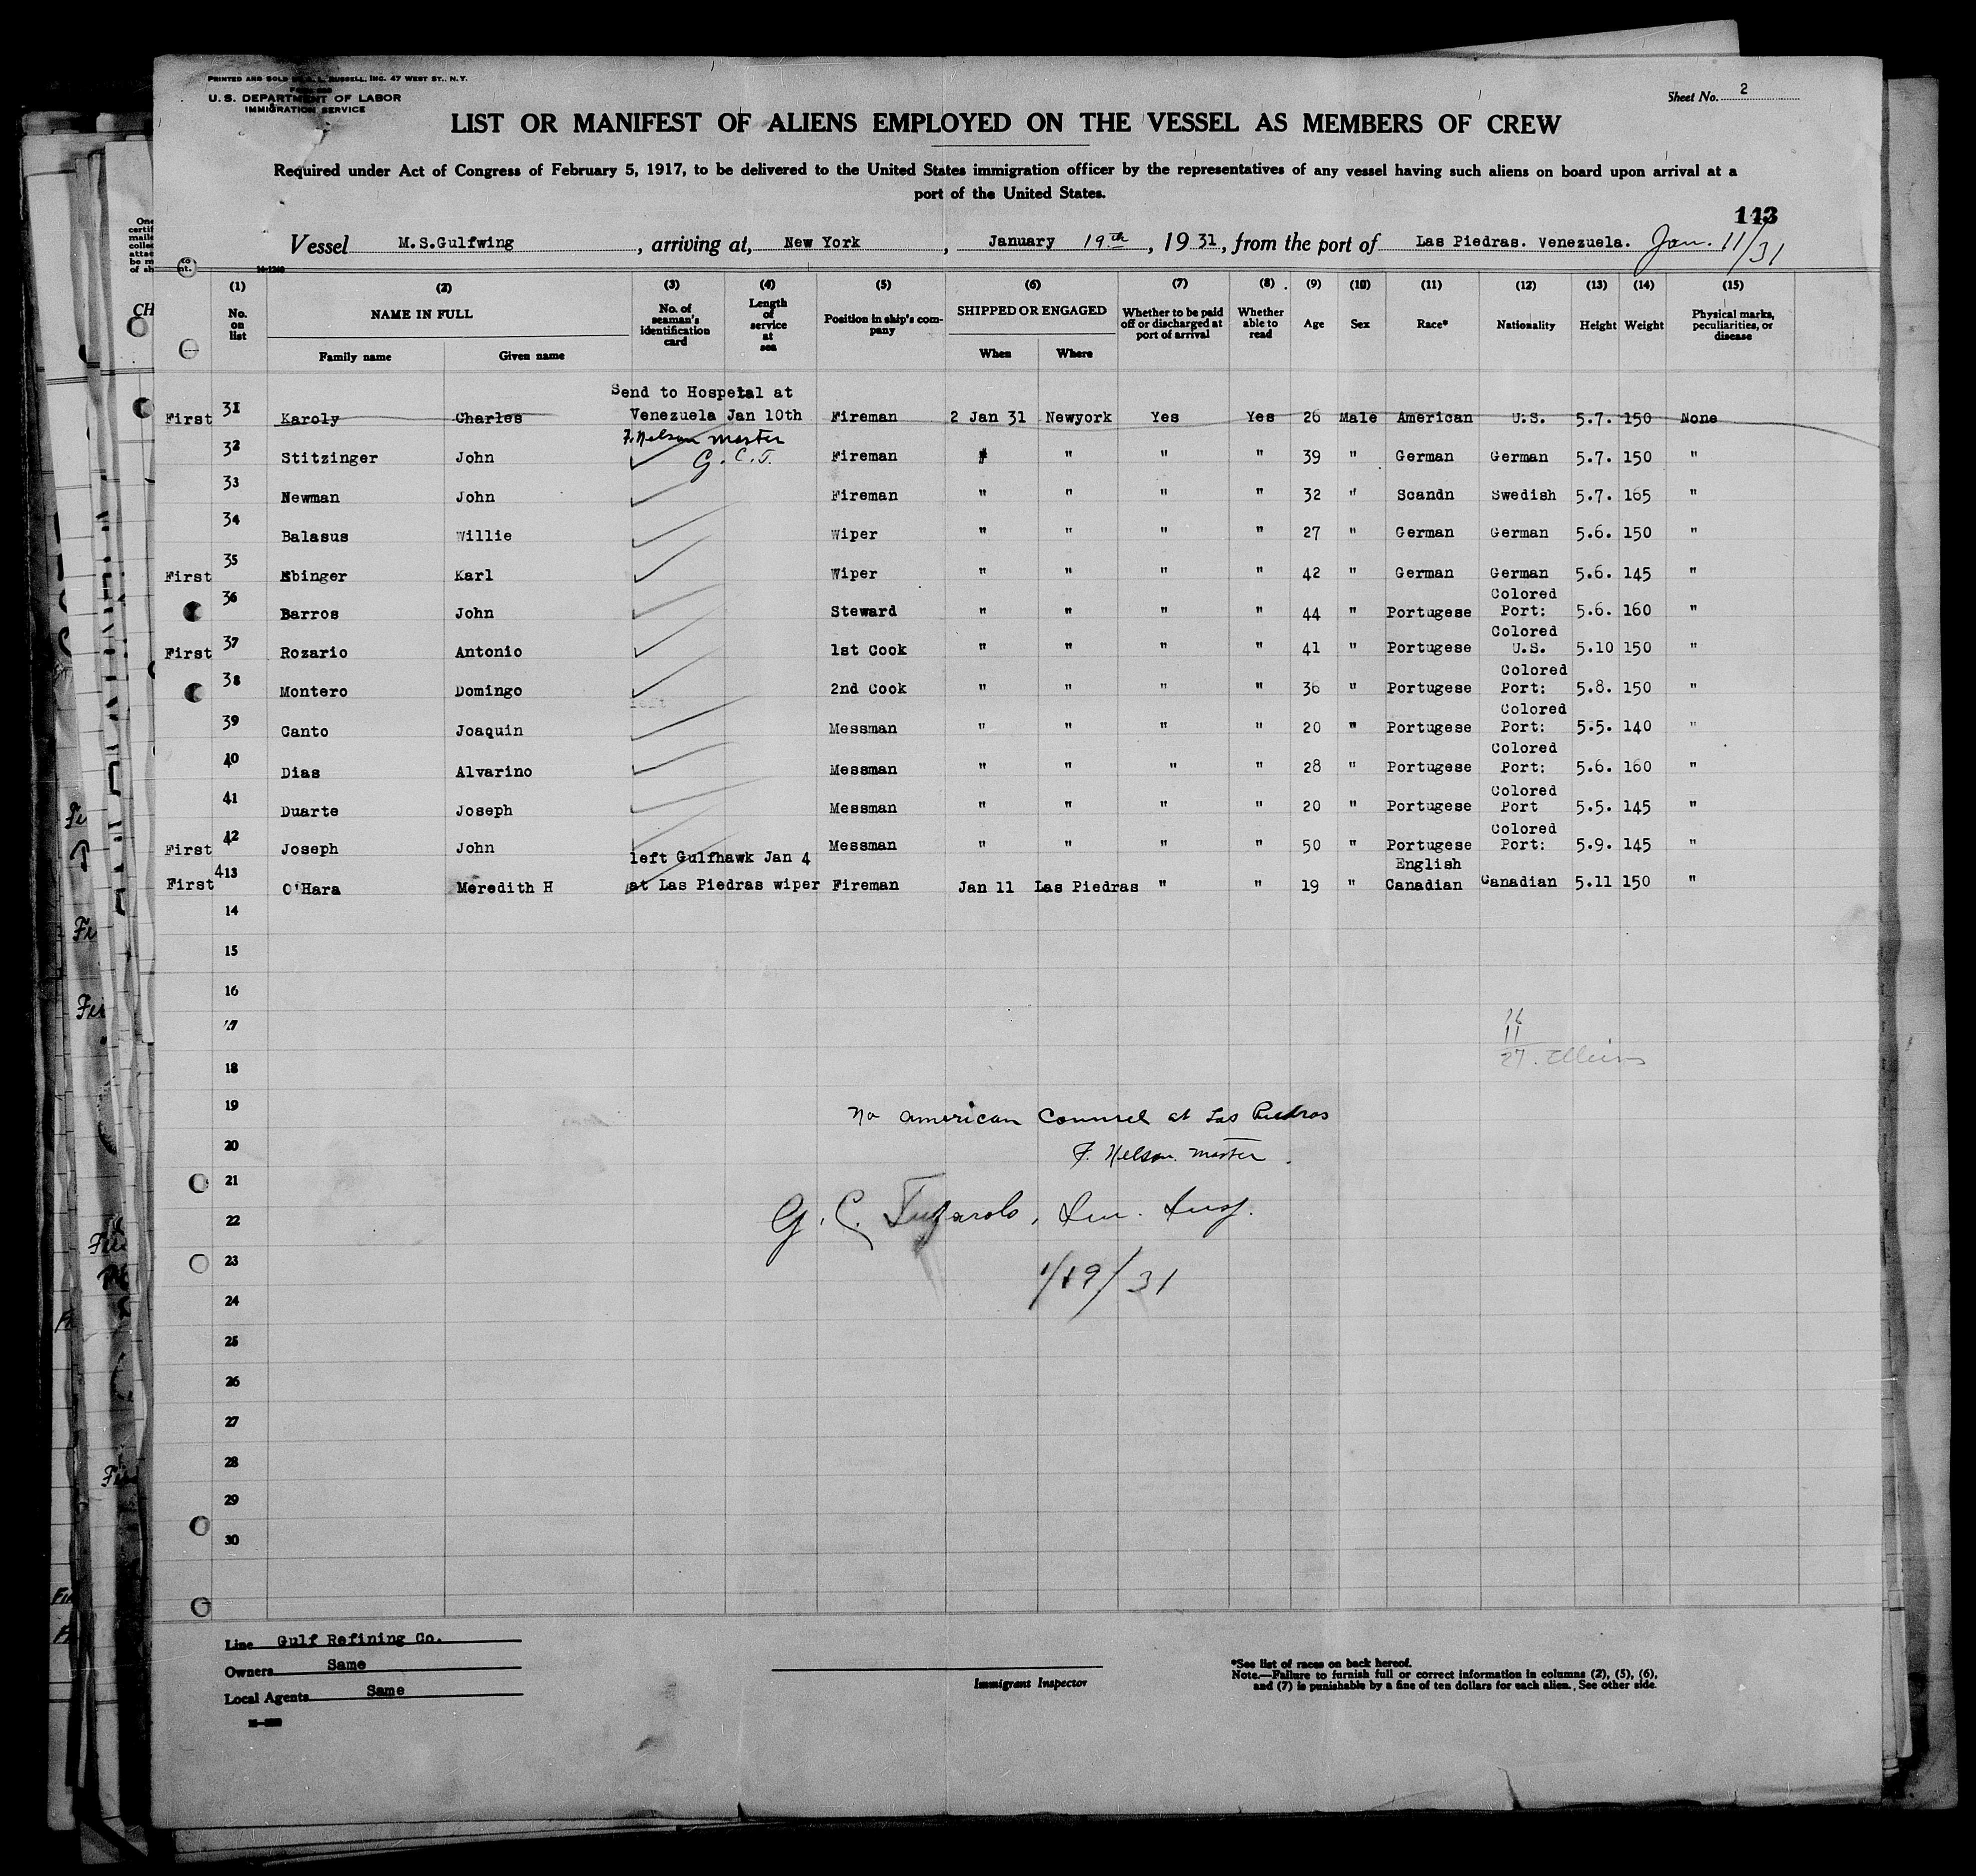 PRINTED AND SOLD RUSSELL, INC. 47 WEST ST., N.Y.
U. S. DEPARTMENT OF LABOR
IMMIGRATION SERVICE
Sheet No. 2
LIST OR MANIFEST OF ALIENS EMPLOYED ON THE VESSEL AS MEMBERS OF CREW
Required under Act of Congress of February 5, 1917, to be delivered to the United States immigration officer by the representatives of any vessel having such aliens on board upon arrival at a
port of the United States.
113
Vessel M.S.Gulfwing, arriving at, New York, January 19th, 1931, from the port of Las Piedras. Venezuela. Jan. 11/31
(1) (2) (3) (4) (5) (6) (7) (8) (9) (10) (11) (12) (13) (14) (15)
No. on list NAME IN FULL Family name Given name No. of seaman's identification card Length of service at sea Position in ship's company SHIPPED OR ENGAGED When Where Whether to be paid off or discharged at port of arrival Whether able to read Age Sex Race* Nationality Height Weight Physical marks, peculiarities, or disease
Send to Hospetal at
First 31 Karoly Charles Venezuela Jan 10th Fireman 2 Jan 31 Newyork Yes Yes 26 Male American U.S. 5.7. 150 None
F. Nelson master
32 Stitzinger John G.C.T. Fireman " " " " 39 " German German 5.7. 150 "
33 Newman John Fireman " " " " 32 " Scandn Swedish 5.7. 165 "
34 Balasus Willie Wiper " " " " 27 " German German 5.6. 150 "
First 35 Ebinger Karl Wiper " " " " 42 " German German 5.6. 145 "
36 Barros John Steward " " " " 44 " Portugese Colored Port: 5.6. 160 "
First 37 Rozario Antonio 1st Cook " " " " 41 " Portugese Colored U.S. 5.10 150 "
38 Montero Domingo 2nd Cook " " " " 36 " Portugese Colored Port: 5.8. 150 "
39 Canto Joaquin Messman " " " " 20 " Portugese Colored Port: 5.5. 140 "
40 Dias Alvarino Messman " " " " 28 " Portugese Colored Port: 5.6. 160 "
41 Duarte Joseph Messman " " " " 20 " Portugese Colored Port 5.5. 145 "
First 42 Joseph John Messman " " " " 50 " Portugese Colored Port: 5.9. 145 "
left Gulfhawk Jan 4 English
First 413 O'Hara Meredith H at Las Piedras wiper Fireman Jan 11 Las Piedras " " 19 " Canadian Canadian 5.11 150 "
14
15
16
17
16
11
27
18
19
No American Counsel at Las Piedras
20
F. Nelson. master.
21
22
G. C.
23
1/19/31
24
25
26
27
28
29
30
Line Gulf Refining Co.
Owners Same
Local Agents Same
Immigrant Inspector
*See list of races on back hereof.
Note.—Failure to furnish full or correct information in columns (2), (5), (6),
and (7) is punishable by a fine of ten dollars for each alien. See other side.